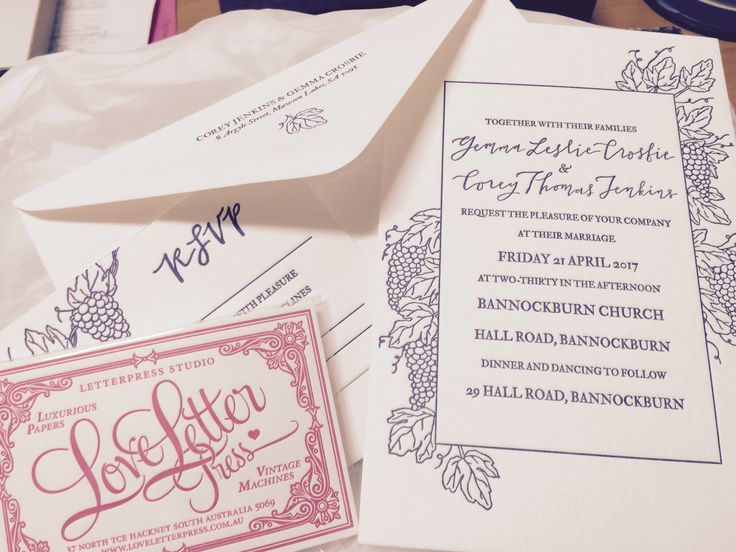 COREY JENKINS & GEMMA CROSBIE
8 Argyle Street, Mawson Lakes, SA 5095
RSVP
WITH PLEASURE
TOGETHER WITH THEIR FAMILIES
Gemma Leslie Crosbie
&
Corey Thomas Jenkins
REQUEST THE PLEASURE OF YOUR COMPANY
AT THEIR MARRIAGE
FRIDAY 21 APRIL 2017
AT TWO-THIRTY IN THE AFTERNOON
BANNOCKBURN CHURCH
HALL ROAD, BANNOCKBURN
DINNER AND DANCING TO FOLLOW
29 HALL ROAD, BANNOCKBURN
LETTERPRESS STUDIO
LUXURIOUS
PAPERS
Love Letter
Press
VINTAGE
MACHINES
37 NORTH TCE HACKNEY SOUTH AUSTRALIA 5069
WWW.LOVELETTERPRESS.COM.AU